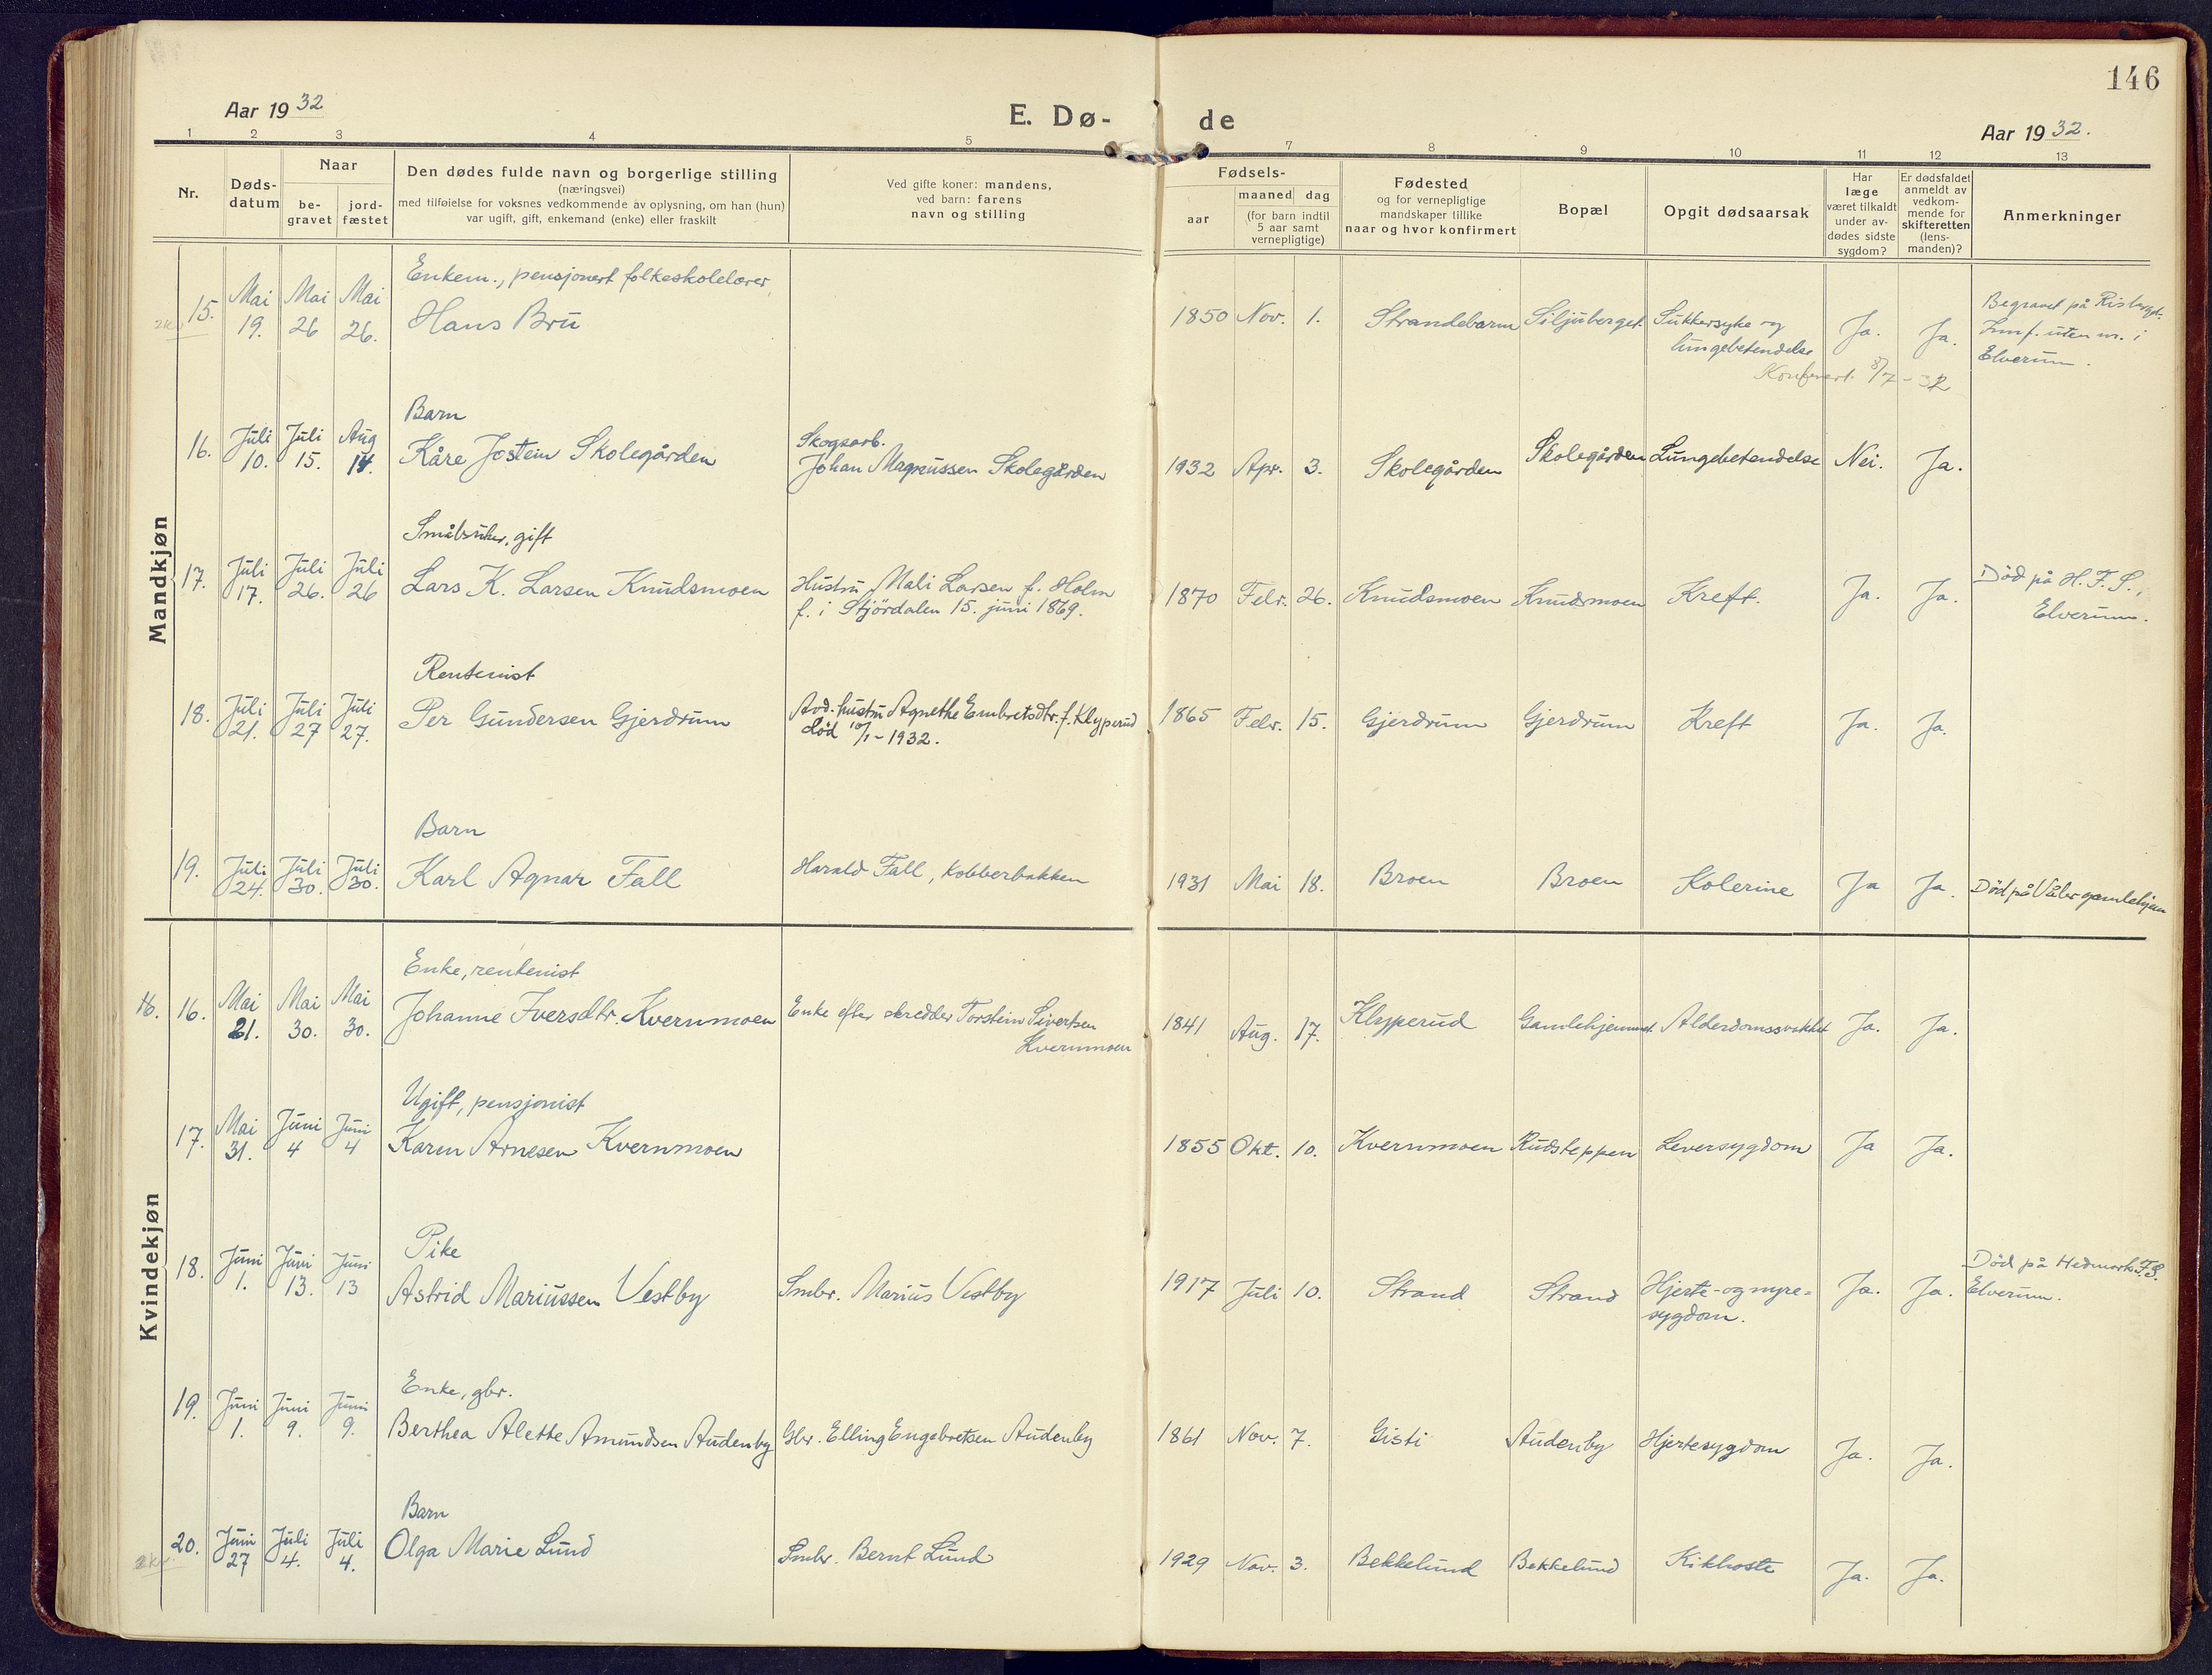 146
Aar 1932
E. Dø-
de
Aar 1932.
1 2 3 4 5 7 8 9 10 11 12 13
Nr.
Døds-
datum
Naar
be-
gravet
jord-
fæstet
Den dødes fulde navn og borgerlige stilling
(næringsvei)
med tilføielse for voksnes vedkommende av oplysning, om han (hun)
var ugift, gift, enkemand (enke) eller fraskilt
Ved gifte koner: mandens,
ved barn: farens
navn og stilling
Fødsels-
aar
maaned
dag
(for barn indtil
5 aar samt
vernepligtige)
Fødested
og for vernepligtige
mandskaper tillike
naar og hvor konfirmert
Bopæl
Opgit dødsaarsak
Har
læge
været tilkaldt
under av-
dødes sidste
sygdom?
Er dødsfaldet
anmeldt av
vedkom-
mende for
skifteretten
(lens-
manden)?
Anmerkninger
Mandkjøn
15.
Mai
19.
Mai
26
Mai
26.
Enkem., pensjonert folkeskolelærer,
Hans Bru
1850 Nov. 1.
Strandebarm
Siljuberget.
Sukkersyke og
lungebetendelse
Ja.
Ja.
Begravet på Risberget.
Jmf. uten nr. i
Elverum.
Konferert. 8/7 - 32
16.
Juli
10.
Juli
15.
Aug
14.
Barn
Kåre Jostein Skolegården
Skogsarb.
Johan Magnussen Skolegården
1932 Apr. 3.
Skolegården
Skolegården
Lungebetendelse
Nei.
Ja.
17.
Juli
17.
Juli
26.
Juli
26
Småbruker, gift
Lars K. Larsen Knudsmoen
Hustru Mali Larsen f. Holm
f. i Stjördalen 15. juni 1869.
1870 Febr. 26.
Knudsmoen
Knudsmoen
Kreft.
Ja.
Ja.
Död på H. F. S.,
Elverum.
18.
Juli
21.
Juli
27
Juli
27.
Rentenist
Per Gundersen Gjerdrum
Avd. hustru Agnethe Embretsdtr. f. Klyperud
död 10/1 - 1932.
1865 Febr. 15.
Gjerdrum
Gjerdrum
Kreft
Ja.
Ja.
19.
Juli
24.
Juli
30.
Juli
30.
Barn
Karl Agnar Fall
Harald Fall, Kobberbakken
1931 Mai 18.
Broen
Broen
Kolerine
Ja
Ja.
Död på Våler gamlehjem
Kvindekjøn
16.
16.
Mai
21.
Mai
30.
Mai
30.
Enke, rentenist
Johanne Iversdtr. Kvernmoen
Enke efter skredder Torstein Sivertsen
Kvernmoen
1841 Aug. 17.
Klyperud
Gamlehjemmet.
Alderdomssvakhet
Ja.
Ja.
17.
Mai
31.
Juni
4
Juni
4
Ugift, pensjonist
Karen Arnesen Kvernmoen
1855 Okt. 10.
Kvernmoen
Rudsteppen
Leversygdom
Ja
Ja.
18.
Juni
1.
Juni
13.
Juni
13
Pike
Astrid Mariussen Vestby
Smbr. Marius Vestby
1917 Juli 10.
Strand
Strand
Hjerte- og nyre-
sygdom.
Ja.
Ja.
Död på Hedmark F.S.
Elverum.
19.
Juni
1.
Juni
9.
Juni
9.
Enke, gbr.
Berthea Alette Amundsen Audenby
Gbr. Elling Engebretsen Audenby
1861 Nov. 7.
Gisti
Audenby
Hjertesygdom
Ja.
Ja.
20.
Juni
27
Juli
4.
Juli
4.
Barn
Olga Marie Lund
Smbr. Bernt Lund
1929 Nov. 3.
Bekkelund
Bekkelund
Kikhoste
Ja.
Ja.